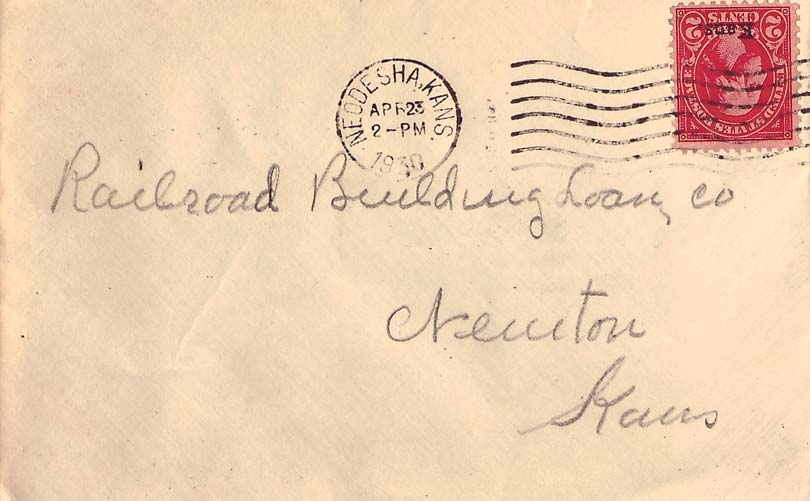 NEODESHA, KANS.
APR 23
2-PM
1930
UNITED STATES POSTAGE
Kans.
2 CENTS 2
Railroad Building Loan, co
Newton
Kans